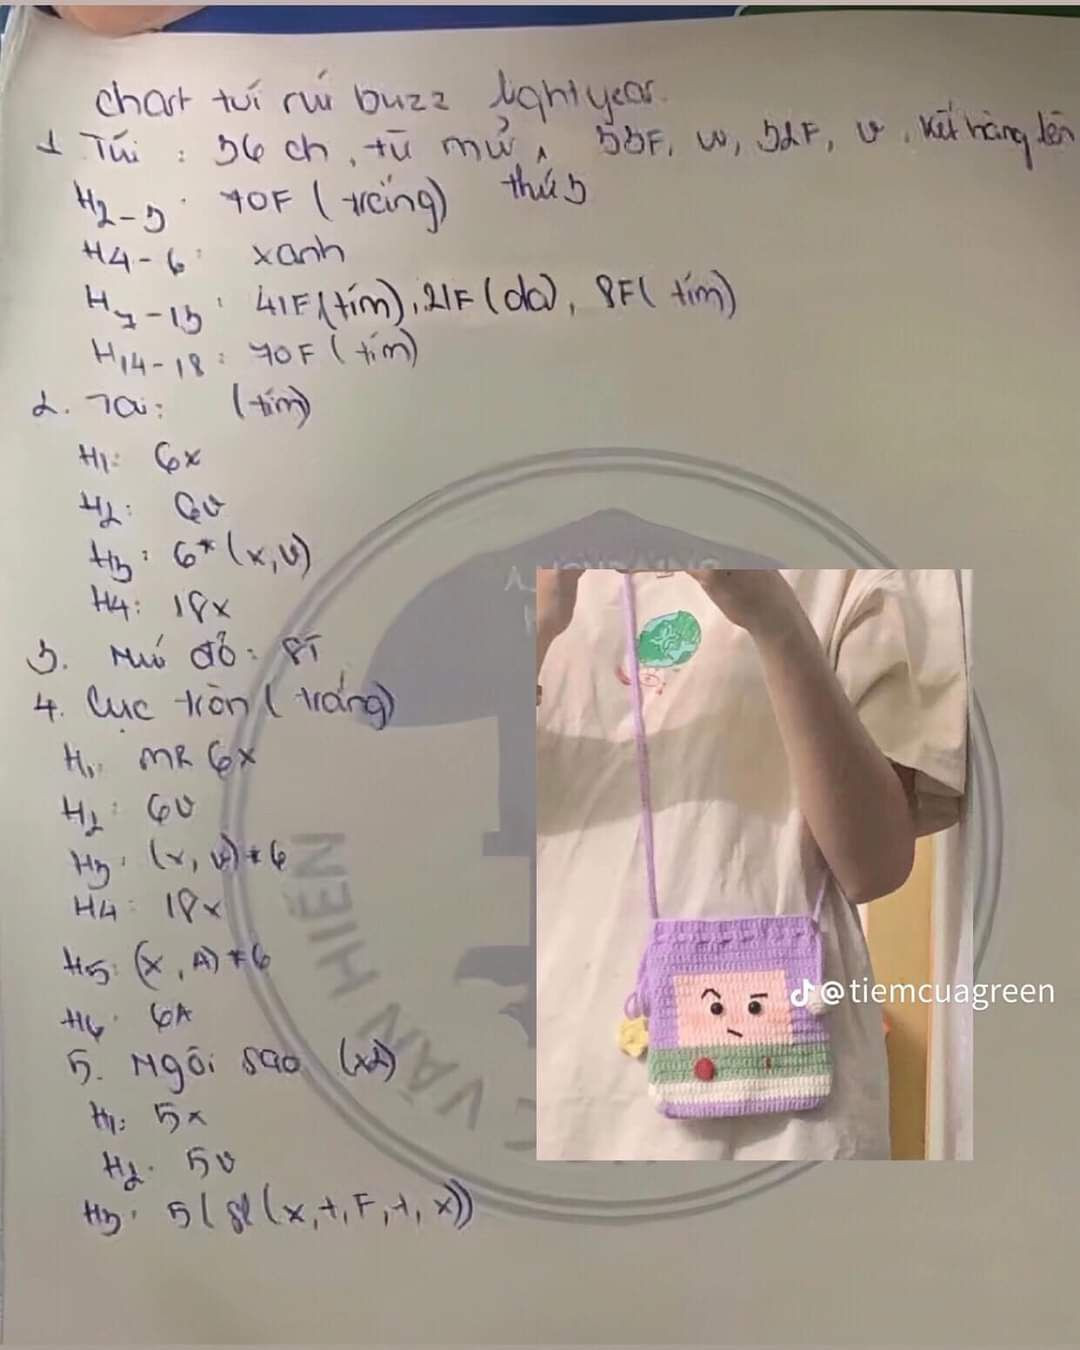 chart túi rút buzz lightyear.
1 Túi : 36 ch, từ mũi thứ 3, 33F, w, 32F, v, kết hàng lên
H2-3 : 70F (trắng)
H4-6 : xanh
H7-13 : 41F (tím), 21F (da), 8F (tím)
H14-18 : 70F (tím)
2. Tai : (tím)
H1: 6x
H2: 6v
H3 : 6*(x,v)
H4: 18x
3. Nút đỏ : 8T
4. Cục tròn (trắng)
H1: MR 6x
H2 : 6v
H3 : (x, v)*6
H4 : 18x
H5 : (x, A)*6
H6 : 6A
5. Ngôi sao (x2)
H1: 5x
H2 : 5v
H3 : 5(sl(x,t,F,t,x))
@tiemcuagreen
VĂN HIẾN